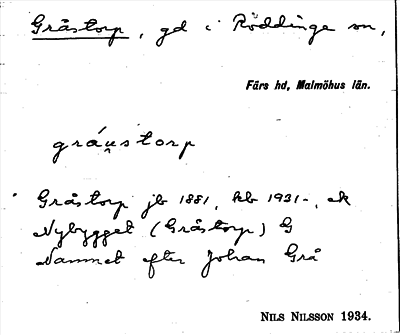 Gråstorp, gd i Röddinge sn,
Färs hd, Malmöhus län.
gráu̯storp
Gråstorp jb 1881, kb 1931-, ek
Nybygget (Gråstorp) G
Namnet efter Johan Grå
NILS NILSSON 1934.